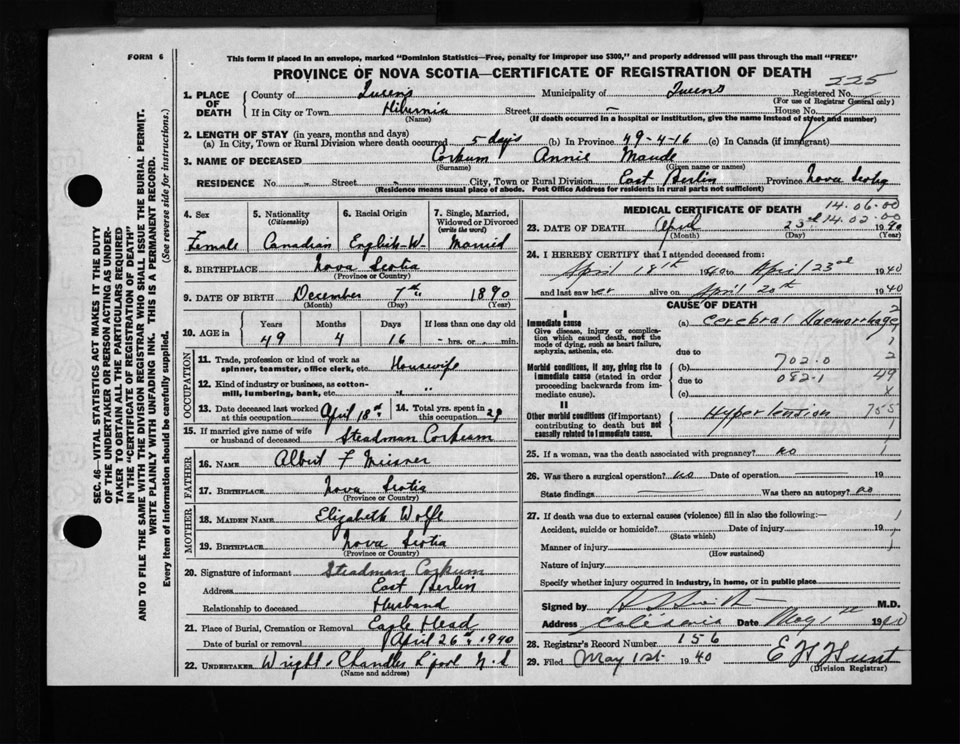 FORM 6
This form if placed in an envelope, marked "Dominion Statistics—Free, penalty for improper use $300," and properly addressed will pass through the mail "FREE"
PROVINCE OF NOVA SCOTIA—CERTIFICATE OF REGISTRATION OF DEATH
225
SEC. 46—VITAL STATISTICS ACT MAKES IT THE DUTY
OF THE UNDERTAKER OR PERSON ACTING AS UNDER-
TAKER TO OBTAIN ALL THE PARTICULARS REQUIRED
IN THE "CERTIFICATE OF REGISTRATION OF DEATH"
AND TO FILE THE SAME WITH THE DIVISION REGISTRAR WHO SHALL ISSUE THE BURIAL PERMIT.
WRITE PLAINLY WITH UNFADING INK. THIS IS A PERMANENT RECORD.
Every item of information should be carefully supplied. (See reverse side for instructions.)
1. PLACE OF DEATH
County of Queens Municipality of Queens Registered No.
(For use of Registrar General only)
If in City or Town Hibernia Street — House No.
(Name) (If death occurred in a hospital or institution, give the name instead of street and number)
2. LENGTH OF STAY (in years, months and days)
(a) In City, Town or Rural Division where death occurred 5 days (b) In Province 49-4-16 (c) In Canada (if immigrant)
3. NAME OF DECEASED Corkum Annie Maude
(Surname) (Given name or names)
RESIDENCE No. - Street - City, Town or Rural Division East Berlin Province Nova Scotia
(Residence means usual place of abode. Post Office Address for residents in rural parts not sufficient)
4. Sex
Female
5. Nationality
(Citizenship)
Canadian
6. Racial Origin
English-W.
7. Single, Married,
Widowed or Divorced
(write the word)
Married
8. BIRTHPLACE Nova Scotia
(Province or Country)
9. DATE OF BIRTH December 7th 1890
(Month) (Day) (Year)
10. AGE in
Years Months Days If less than one day old
49 4 16 - hrs. or min.
OCCUPATION
11. Trade, profession or kind of work as
spinner, teamster, office clerk, etc. Housewife
12. Kind of industry or business, as cotton-
mill, lumbering, bank, etc. "
13. Date deceased last worked
at this occupation April 18th
14. Total yrs. spent in
this occupation 29
15. If married give name of wife
or husband of deceased Steadman Corkum
FATHER
16. NAME Albert F Meisner
17. BIRTHPLACE Nova Scotia
(Province or Country)
MOTHER
18. MAIDEN NAME Elizabeth Wolfe
19. BIRTHPLACE Nova Scotia
(Province or Country)
20. Signature of informant Steadman Corkum
Address East Berlin
Relationship to deceased Husband
21. Place of Burial, Cremation or Removal Eagle Head
Date of burial or removal April 26th 1940
22. UNDERTAKER Wright & Chandler L'pool N.S
(Name and address)
MEDICAL CERTIFICATE OF DEATH 14.06.00
14.02.00
23. DATE OF DEATH April 23rd 1940
(Month) (Day) (Year)
24. I HEREBY CERTIFY that I attended deceased from:
April 18th 1940 to April 23rd 1940
and last saw her alive on April 20th 1940
CAUSE OF DEATH
I
Immediate cause
Give disease, injury or complica-
tion which caused death, not the
mode of dying, such as heart failure,
asphyxia, asthenia, etc.
(a) Cerebral Haemorrhage
due to
Morbid conditions, if any, giving rise to
immediate cause (stated in order
proceeding backwards from im-
mediate cause).
(b) 702.0
due to 082.1
(c)
2
1
2
49
x
II
Other morbid conditions (if important)
contributing to death but not
causally related to I immediate cause.
Hypertension 755
25. If a woman, was the death associated with pregnancy? no
26. Was there a surgical operation? no Date of operation — 19
State findings — Was there an autopsy? no
27. If death was due to external causes (violence) fill in also the following:—
Accident, suicide or homicide? Date of injury 19
(State which)
Manner of injury
(How sustained)
Nature of injury
Specify whether injury occurred in industry, in home, or in public place
Signed by M.D.
Address Caledonia Date May 1 1940
28. Registrar's Record Number 156
29. Filed May 1st 1940 E H Hunt
(Division Registrar)